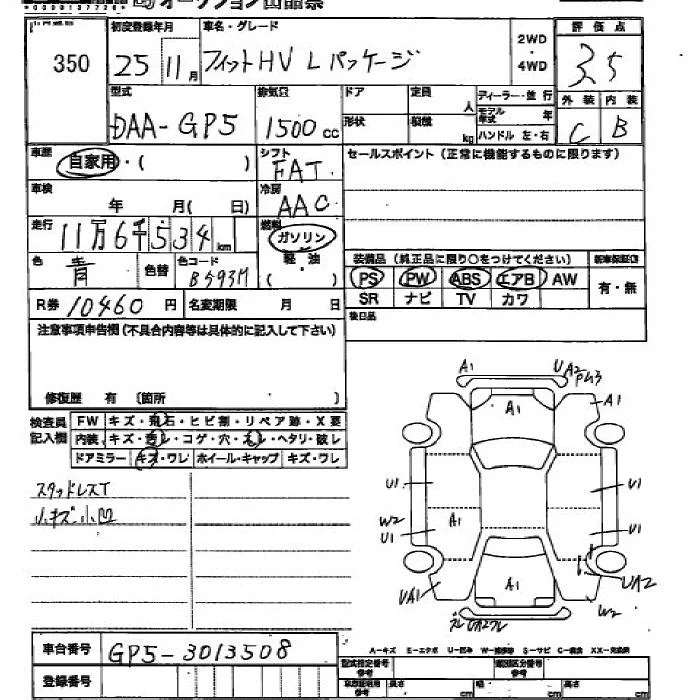 オークション出品票
350
初度登録年月
25 11月
車名・グレード
フィットHV Lパッケージ
2WD・4WD
評価点
3.5
型式
DAA-GP5
排気量
1500cc
ドア
定員
人
形状
積載
kg
ディーラー・並行
モデル年式 年
ハンドル 左・右
外装 内装
C B
車歴
自家用・( )
シフト
FAT
セールスポイント (正常に機能するものに限ります)
車検
年 月( 日)
冷房
AAC
走行
11万6千534km
燃料
ガソリン
軽油
( )
色
青
色替
色コード
B593M
装備品 (純正品に限り○をつけてください)
新車保証書
PS PW ABS エアB AW
有・無
SR ナビ TV カワ
R券 10460円
名変期限 月 日
後日品
注意事項申告欄(不具合内容等は具体的に記入して下さい)
修復歴 有 〔箇所 〕
検査員記入欄
FW キズ・飛石・ヒビ割・リペア跡・X要
内装 キズ・汚レ・コゲ・穴・スレ・ヘタリ・破レ
ドアミラー キズ・ワレ ホイール・キャップ キズ・ワレ
スタッドレスT
小キズ小凹
A1
UA2
A1
A1
U1
U1
W2
U1
A1
U1
UA1
A1
UA2
W2
A-キズ E-エクボ U-凹み W-補修跡 S-サビ C-腐食 XX-交換済
車台番号
GP5-3013508
登録番号
型式指定番号 参考
類別区分番号 参考
長さ cm
幅 cm
高さ cm